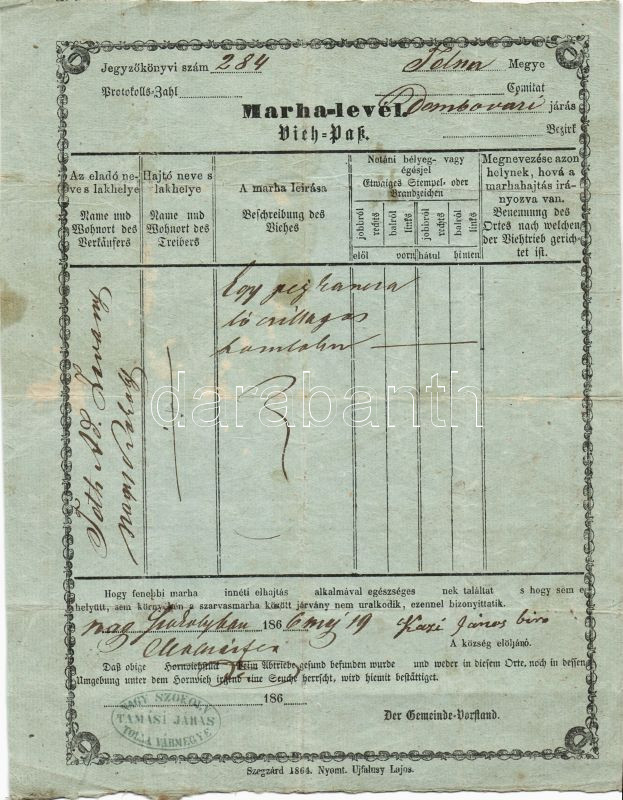 Jegyzőkönyvi szám 284 Tolna Megye
Protokolls-Zahl Comitat
Marha-levél. Dombovari járás
Vieh-Paß. Bezirk
Az eladó neve s lakhelye
Name und Wohnort des Verkäufers
Hajtó neve s lakhelye
Name und Wohnort des Treibers
A marha leirása
Beschreibung des Viehes
Netáni bélyeg- vagy égésjel
Etwaiges Stempel- oder Brandzeichen
jobbról rechts
balról links
jobbról rechts
balról links
elől vorn hátul hinten
Megnevezése azon helynek, hová a marhahajtás irányozva van.
Benennung des Ortes nach welchen der Viehtrieb gerichtet ist.
Toth Ádám
Egy pej kancza
ló csillagos
darabanth
Hogy fenebbi marha innéti elhajtás alkalmával egészséges nek találtat s hogy sem e
helyütt, sem környékén a szarvasmarha között járvány nem uralkodik, ezennel bizonyittatik.
nagy Szokolyban 1866 maj 19 János biró
A község elöljáró.
Daß obige Hornviehstück beim Abtriebe gesund befunden wurde und weder in diesem Orte, noch in dessen
Umgebung unter dem Hornvieh irgend eine Seuche herrscht, wird hiemit bestättiget.
186
NAGY SZOKOLY
TAMÁSI JÁRÁS
TOLNA VÁRMEGYE
Der Gemeinde-Vorstand.
Szegzárd 1864. Nyomt. Ujfalusy Lajos.